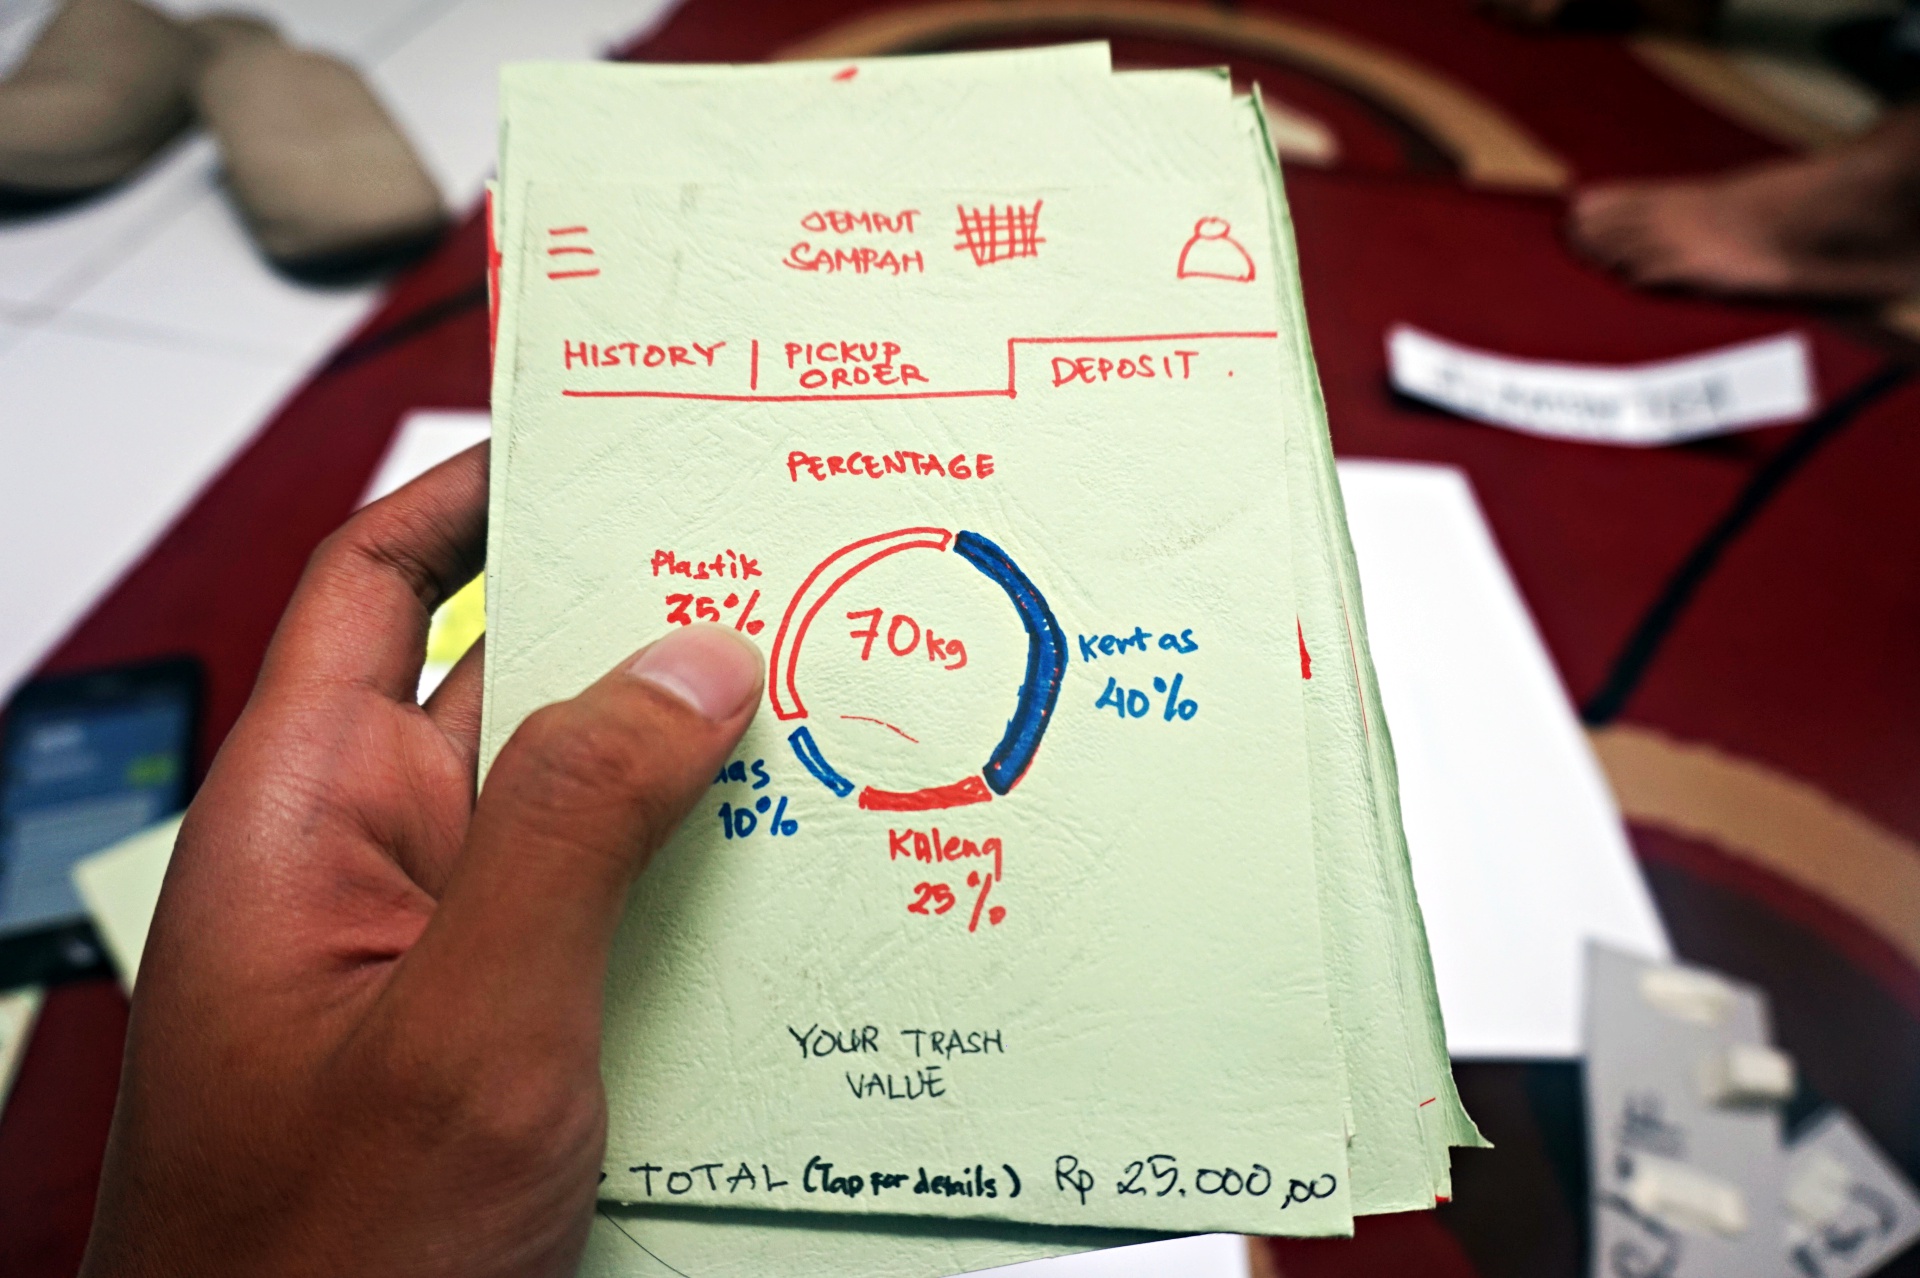 JEMPUT
SAMPAH
HISTORY
PICKUP
ORDER
DEPOSIT
PERCENTAGE
Plastik
35%
70kg
kertas
40%
10%
Kaleng
25%
YOUR TRASH
VALUE
TOTAL (Tap for details) Rp 25.000,00